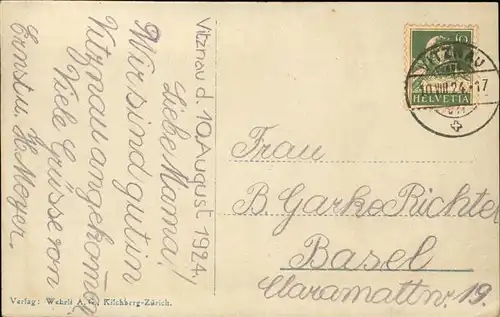 Vitznau d. 10 August 1924.
Liebe Mama!
Wir sind gut in
Vitznau angekomen
Viele Grüsse von
Ernst u. H. Meyer.
10
HELVETIA
VITZNAU
10.VIII.24.-17
Frau
B. Garke Richter
Basel
Claramattnr. 19.
Verlag: Wehrli A.G., Kilchberg-Zürich.